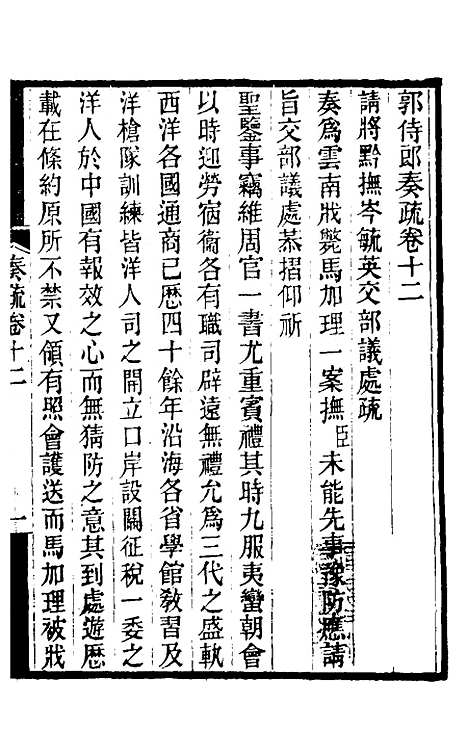 郭侍郎奏疏卷十二
請將黔撫岑毓英交部議處疏
奏爲雲南戕斃馬加理一案撫臣未能先事豫防應請
旨交部議處恭摺仰祈
聖鑒事竊維周官一書尤重賓禮其時九服夷蠻朝會
以時迎勞宿衞各有職司辟遠無禮允爲三代之盛軌
西洋各國通商已歷四十餘年沿海各省學館教習及
洋槍隊訓練皆洋人司之開立口岸設關征稅一委之
洋人於中國有報效之心而無猜防之意其到處遊歷
載在條約原所不禁又領有照會護送而馬加理被戕
奏疏卷十二
一